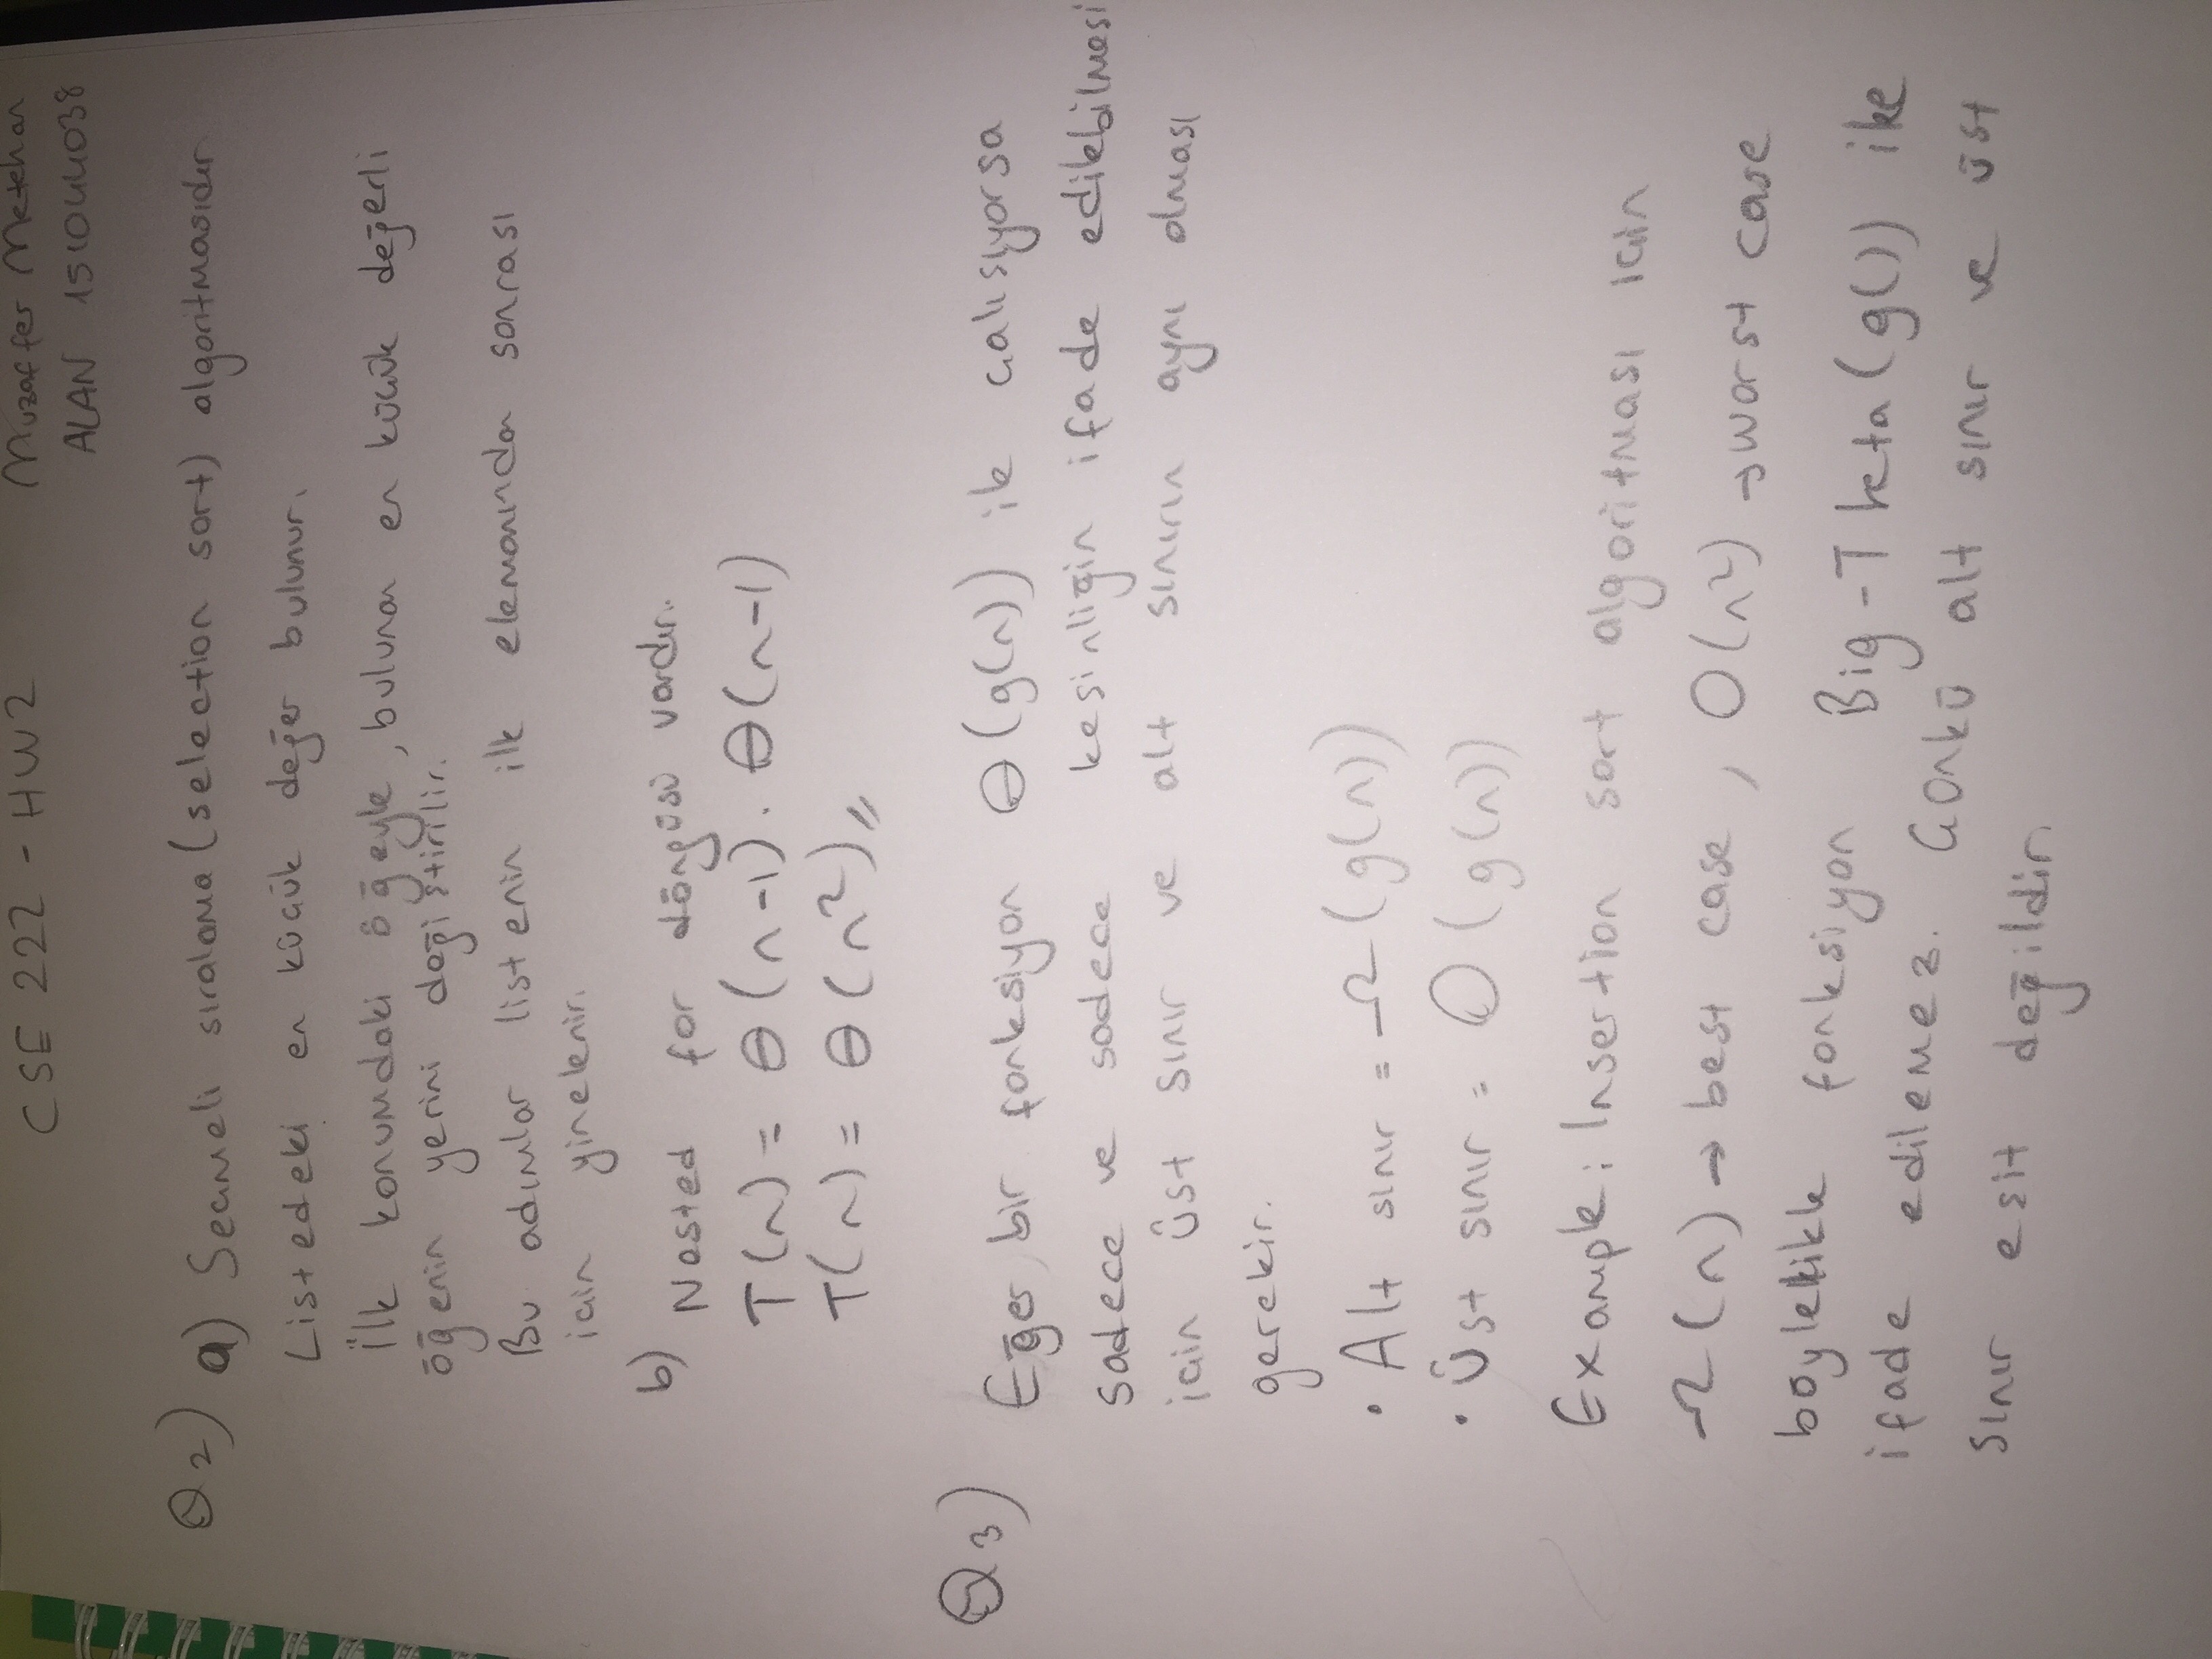 CSE 222 - HW2
Muzaffer Metehan
ALAN 151044038
Q2) a) Seçmeli sıralama (selection sort) algoritmasıdır
Listedeki en küçük değer bulunur.
İlk konumdaki öğeyle, bulunan en küçük değerli
öğenin yerini değiştirilir.
Bu adımlar listenin ilk elemanından sonrası
için yinelenir.
b) Nested for döngüsü vardır.
T(n) = Θ(n-1) . Θ(n-1)
T(n) = Θ(n²) //
Q3) Eğer bir fonksiyon Θ(g(n)) ile çalısıyorsa
sadece ve sadece kesinliğin ifade edilebilmesi
için üst sınır ve alt sınırın aynı olması
gerekir.
• Alt sınır = Ω(g(n))
• Üst sınır = O(g(n))
Example: Insertion sort algoritması için
Ω(n) → best case, O(n²) → worst case
böylelikle fonksiyon Big-Theta(g()) ile
ifade edilemez. Çünkü alt sınır ve üst
sınır eşit değildir.